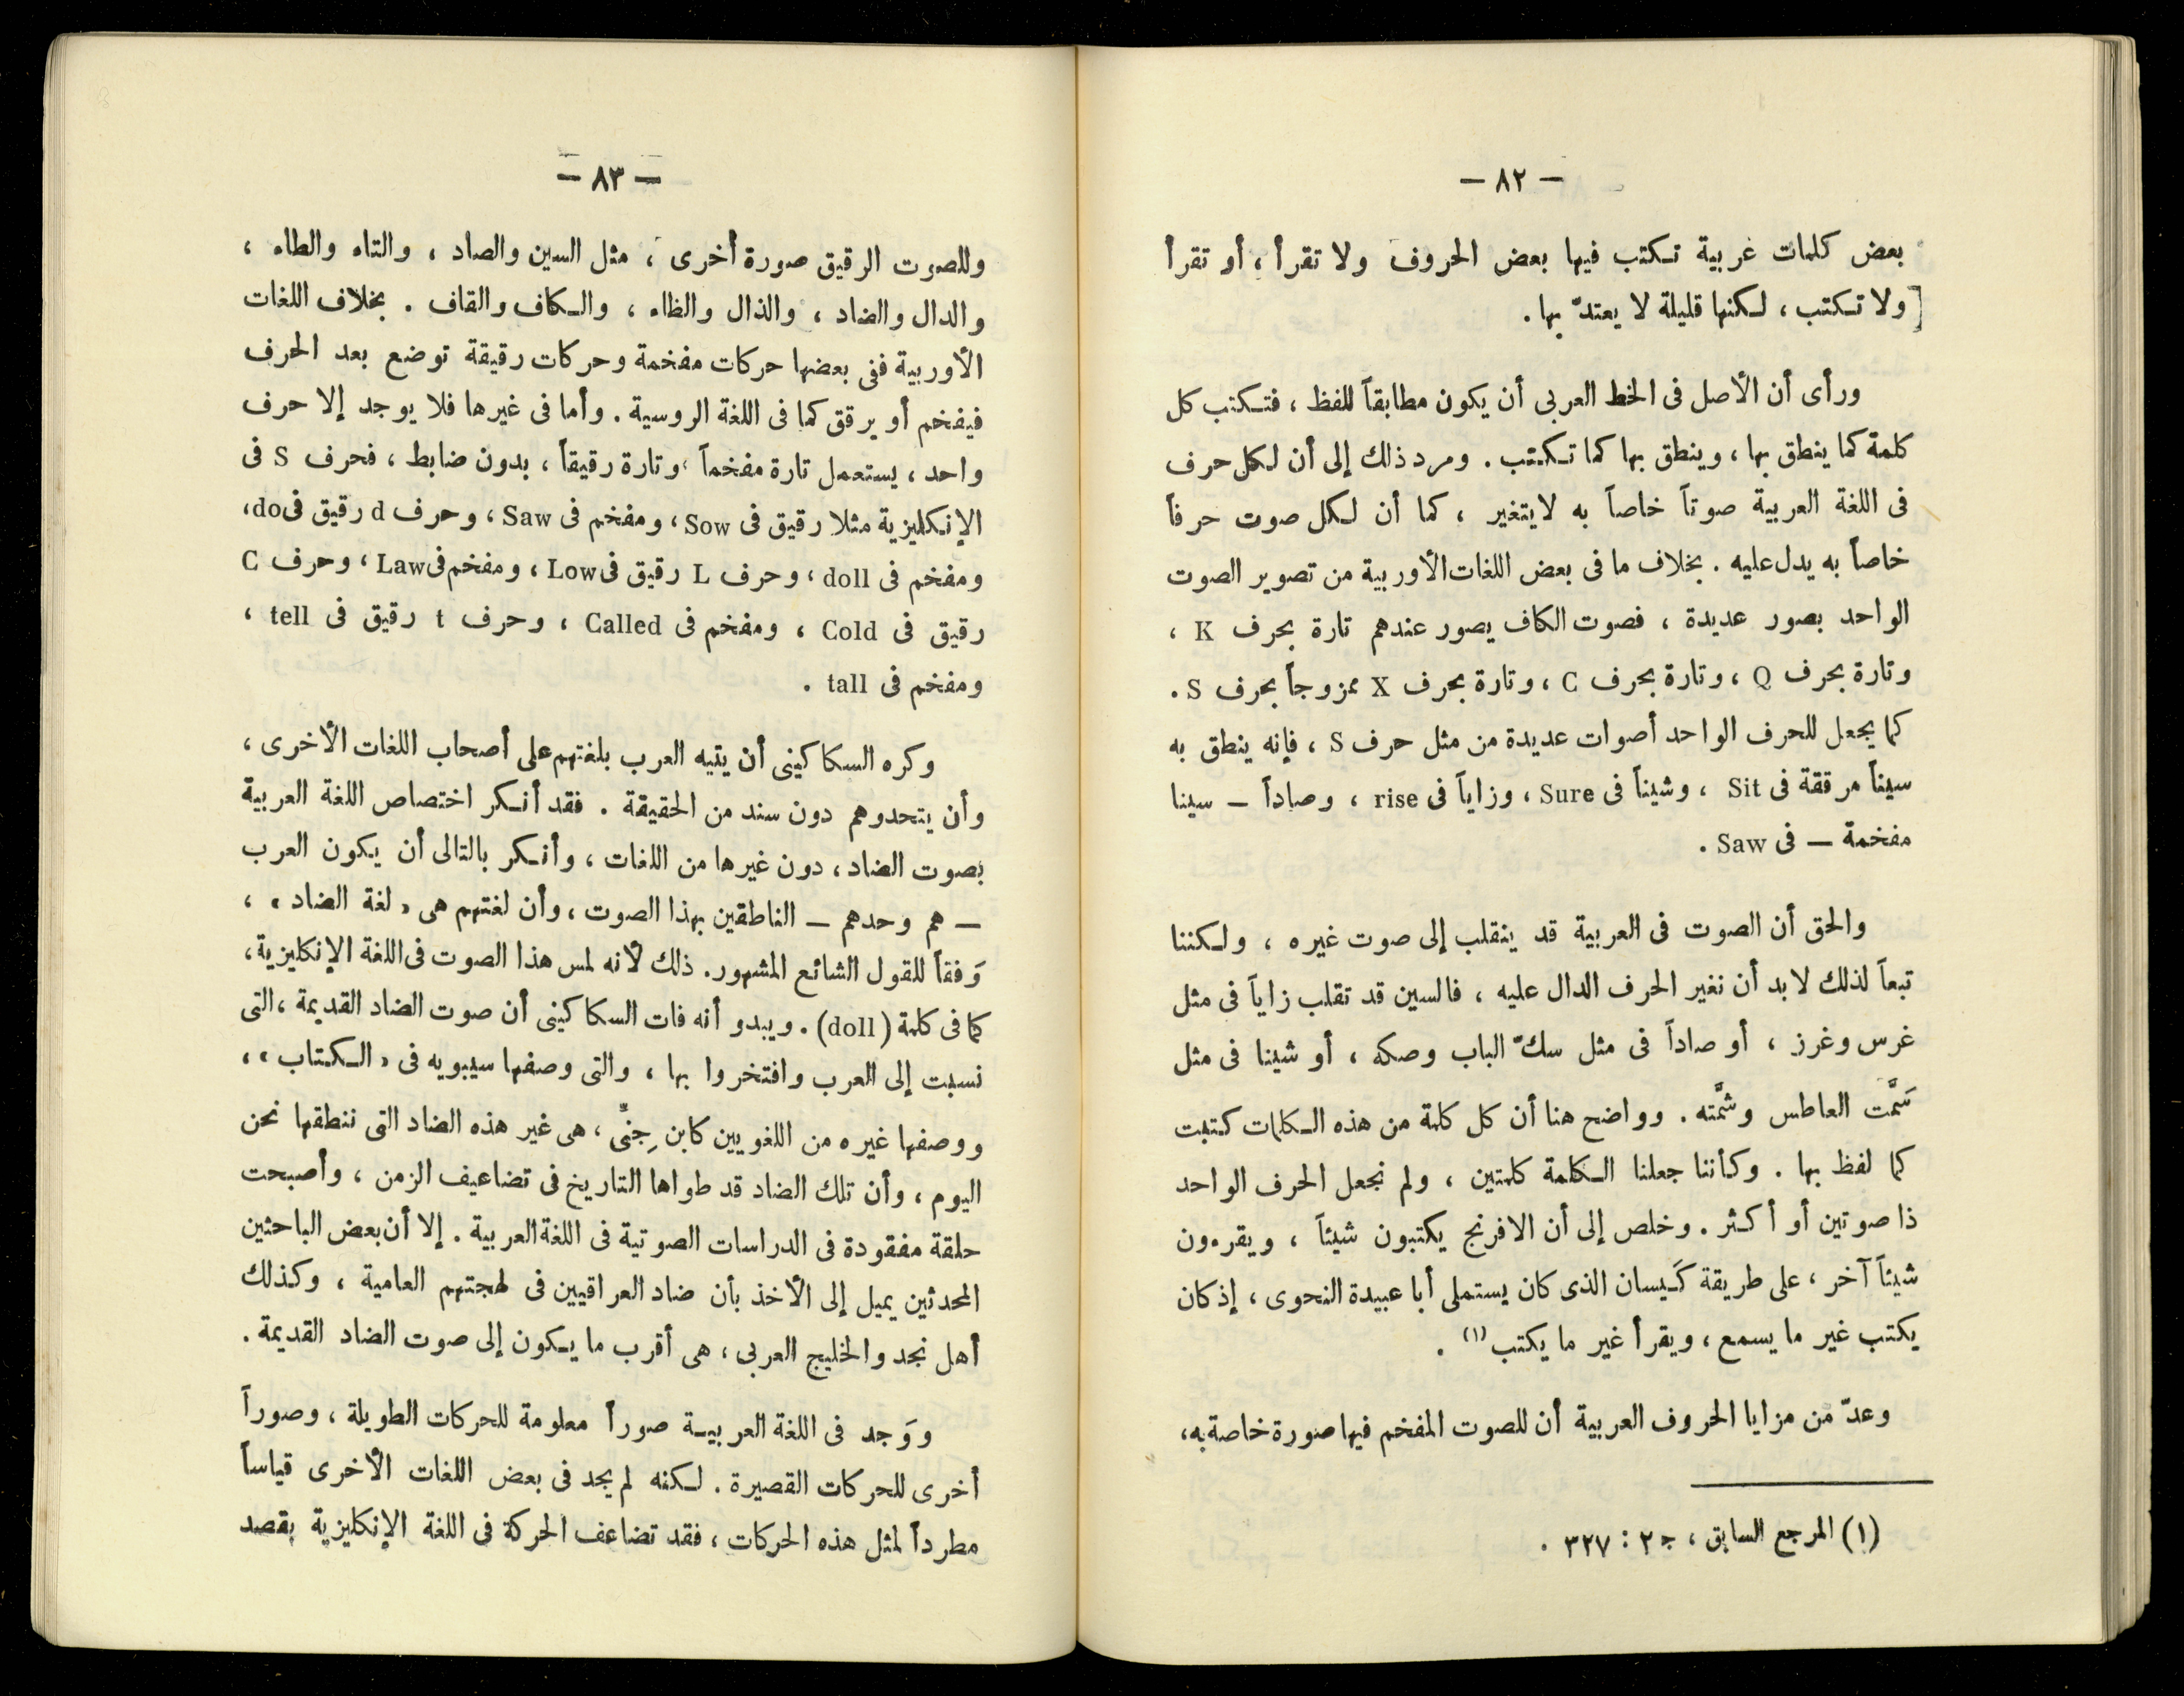 — ٨٢ —
بعض كلمات غربية تكتب فيها بعض الحروف ولا تقرأ ، أو تقرأ
[ ولا تكتب ، لكنها قليلة لا يعتدّ بها .
ورأى أن الأصل فى الخط العربى أن يكون مطابقاً للفظ ، فتكتب كل
كلمة كما ينطق بها ، وينطق بها كما تكتب . ومرد ذلك إلى أن لكل حرف
فى اللغة العربية صوتاً خاصاً به لايتغير ، كما أن لكل صوت حرفاً
خاصاً به يدل عليه . بخلاف ما فى بعض اللغات الأوربية من تصوير الصوت
الواحد بصور عديدة ، فصوت الكاف يصور عندهم تارة بحرف K ،
وتارة بحرف Q ، وتارة بحرف C ، وتارة بحرف X ممزوجاً بحرف S .
كما يجعل للحرف الواحد أصوات عديدة من مثل حرف S ، فإنه ينطق به
سيناً مرققة فى Sit ، وشيناً فى Sure ، وزاياً فى rise ، وصاداً — سينا
مفخمة — فى Saw .
والحق أن الصوت فى العربية قد ينقلب إلى صوت غيره ، ولكننا
تبعاً لذلك لابد أن نغير الحرف الدال عليه ، فالسين قد تقلب زاياً فى مثل
غرس وغرز ، أو صاداً فى مثل سكّ الباب وصكه ، أو شينا فى مثل
سَمَّت العاطس وشَمَّته . وواضح هنا أن كل كلمة من هذه الكلمات كتبت
كما لفظ بها . وكأننا جعلنا الكلمة كلمتين ، ولم نجعل الحرف الواحد
ذا صوتين أو أكثر . وخلص إلى أن الافرنج يكتبون شيئاً ، ويقرءون
شيئاً آخر ، على طريقة كَيسان الذى كان يستملى أبا عبيدة النحوى ، إذ كان
يكتب غير ما يسمع ، ويقرأ غير ما يكتب (١) .
وعدّ من مزايا الحروف العربية أن للصوت المفخم فيها صورة خاصة به،
(١) المرجع السابق ، ج ٢ : ٣٢٧ .
— ٨٣ —
وللصوت الرقيق صورة أخرى ، مثل السين والصاد ، والتاء والطاء ،
والدال والضاد ، والذال والظاء ، والكاف والقاف . بخلاف اللغات
الأوربية ففى بعضها حركات مفخمة وحركات رقيقة توضع بعد الحرف
فيفخم أو يرقق كما فى اللغة الروسية . وأما فى غيرها فلا يوجد إلا حرف
واحد ، يستعمل تارة مفخماً ، وتارة رقيقاً ، بدون ضابط ، فحرف S فى
الإنكليزية مثلا رقيق فى Sow ، ومفخم فى Saw ، وحرف d رقيق فى do،
ومفخم فى doll ، وحرف L رقيق فى Low ، ومفخم فى Law ، وحرف C
رقيق فى Cold ، ومفخم فى Called ، وحرف t رقيق فى tell ،
ومفخم فى tall .
وكره السكاكينى أن يتيه العرب بلغتهم على أصحاب اللغات الأخرى ،
وأن يتحدوهم دون سند من الحقيقة . فقد أنكر اختصاص اللغة العربية
بصوت الضاد ، دون غيرها من اللغات ، وأنكر بالتالى أن يكون العرب
— هم وحدهم — الناطقين بهذا الصوت ، وأن لغتهم هى « لغة الضاد » ،
وَفقاً للقول الشائع المشهور . ذلك لأنه لمس هذا الصوت فى اللغة الإنكليزية،
كما فى كلمة (doll) . ويبدو أنه فات السكاكينى أن صوت الضاد القديمة ، التى
نسبت إلى العرب وافتخروا بها ، والتى وصفها سيبويه فى « الكتاب » ،
ووصفها غيره من اللغويين كابن جِنِّى ، هى غير هذه الضاد التى ننطقها نحن
اليوم ، وأن تلك الضاد قد طواها التاريخ فى تضاعيف الزمن ، وأصبحت
حلقة مفقودة فى الدراسات الصوتية فى اللغة العربية . إلا أن بعض الباحثين
المحدثين يميل إلى الأخذ بأن ضاد العراقيين فى لهجتهم العامية ، وكذلك
أهل نجد والخليج العربى ، هى أقرب ما يكون إلى صوت الضاد القديمة .
ووَجد فى اللغة العربية صوراً معلومة للحركات الطويلة ، وصوراً
أخرى للحركات القصيرة . لكنه لم يجد فى بعض اللغات الأخرى قياساً
مطرداً لمثل هذه الحركات ، فقد تضاعف الحركة فى اللغة الإنكليزية بقصد